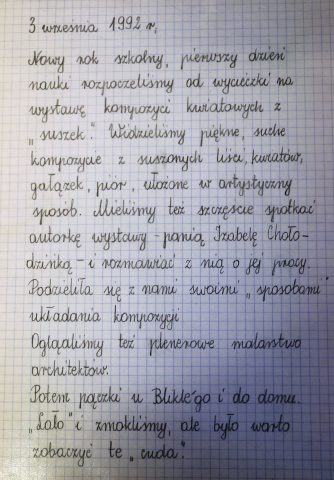 3 września 1992 r.
Nowy rok szkolny, pierwszy dzień
nauki rozpoczeliśmy od wycieczki na
wystawę kompozycji kwiatowych z
„suszek". Widzieliśmy piękne, suche
kompozycje z suszonych liści, kwiatów,
gałązek, piór, ułożone w artystyczny
sposób. Mieliśmy też szczęście spotkać
autorkę wystawy - panią Izabelę Choło-
dzińką - i rozmawiać z nią o jej pracy.
Podzieliła się z nami swoimi „sposobami"
układania kompozycji
Oglądaliśmy też plenerowe malarstwo
architektów.
Potem pączki u Blikle'go i do domu.
„Lało" i zmokliśmy, ale było warto
zobaczyć te „cuda".